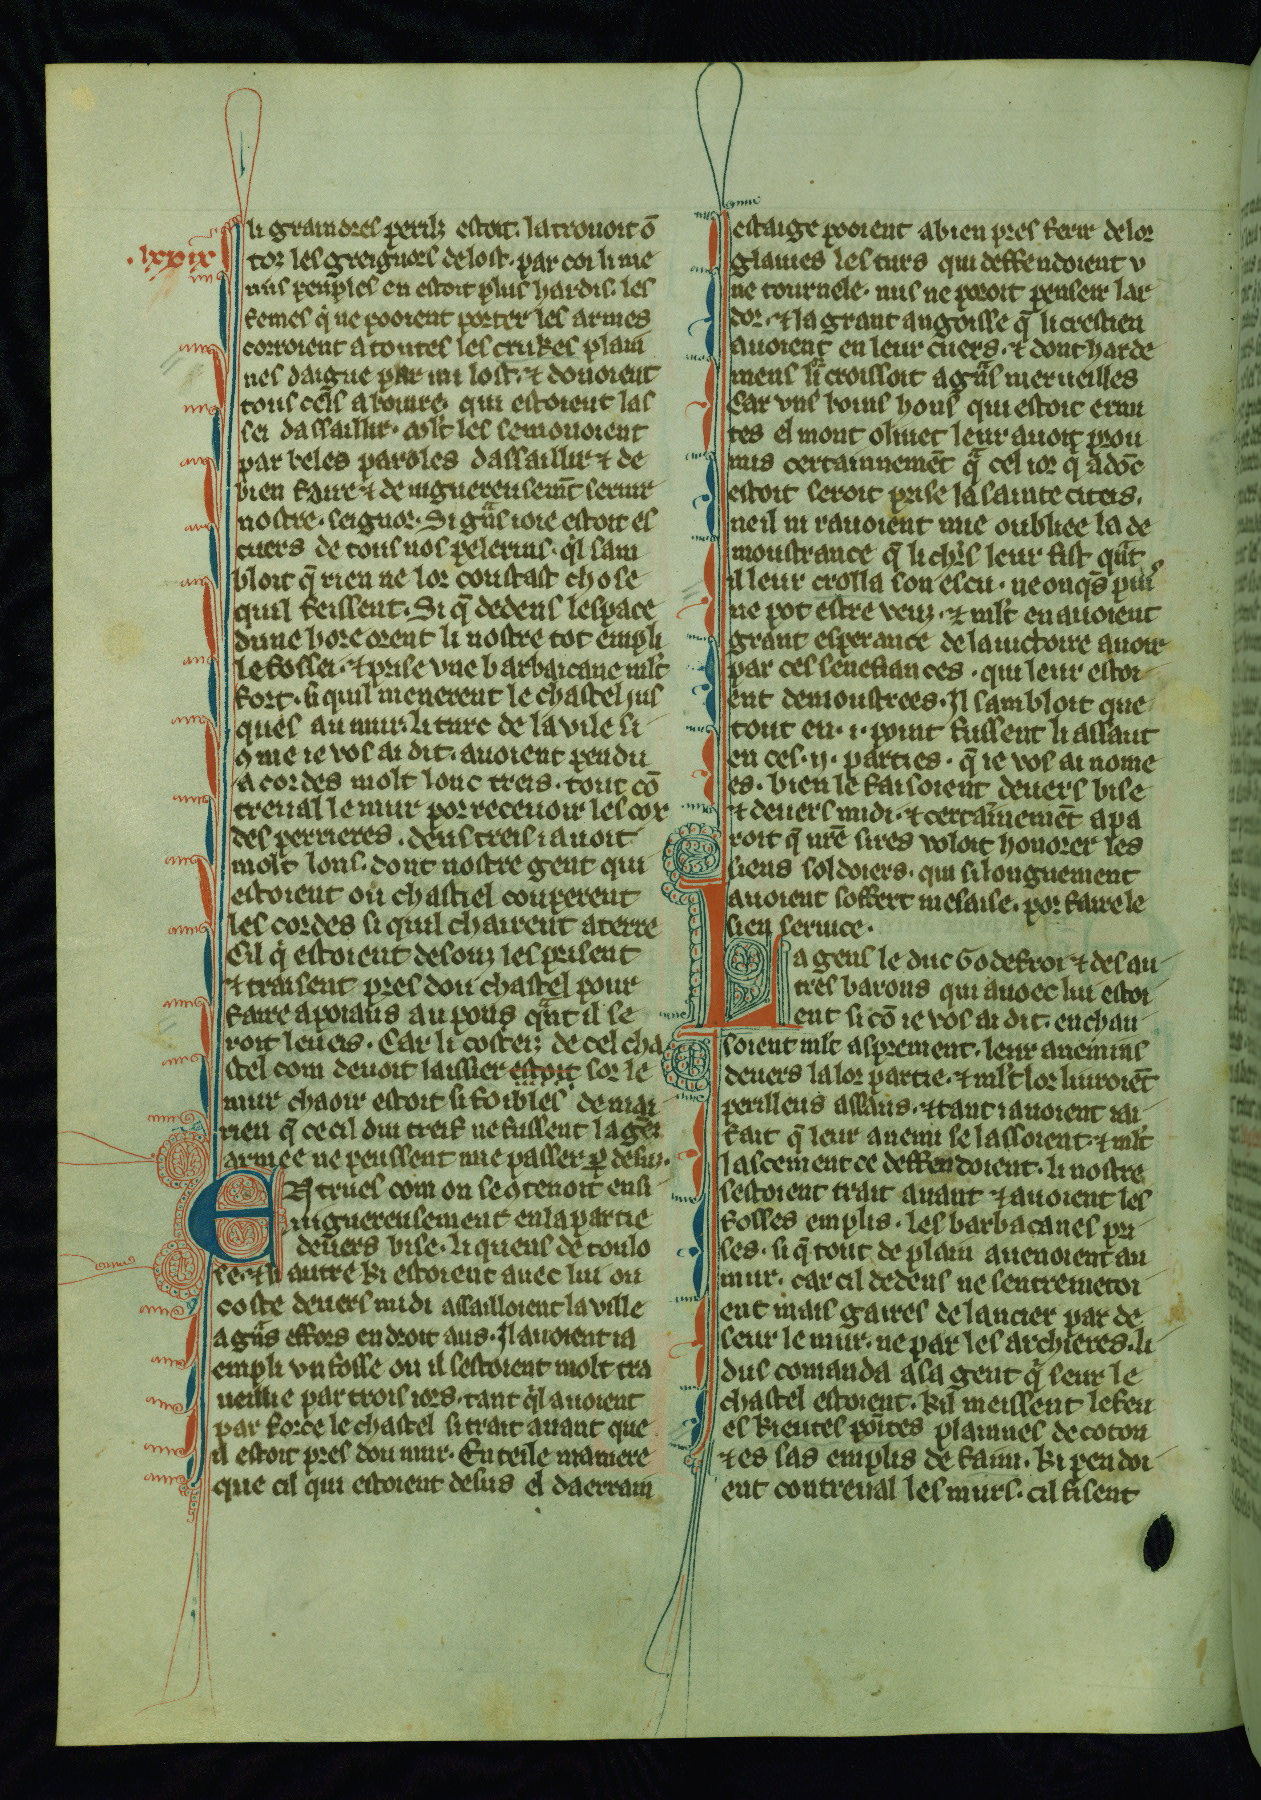 li graindres perilz estoit. la trouoit ō
.lxxix.
tor les greignors de lost. par coi li me
nus peuples en estoit plus hardis. les
femes q̄ ne pooient porter les armes
corroient a toutes les crukes plain
nes daigue par mi lost. ⁊ donoient
tous ceus a boiure qui estoient las
sei dassaillir. ⁊ molt les semonoient
par beles paroles dassaillir ⁊ de
bien faire ⁊ de uiguereusemēt seruir
nostre. seignor. Si gr̄ns ioie estoit es
cuers de tous nos pelerins. q̄l sam
bloit q̄ rien ne lor coustast chose
quil feissent. Si q̄ dedens lespace
dune hore orent li nostre tot empli
le fossei. ⁊ prise vne barbaicane ml̄t
fort. si quil menerent le chastel ius
ques au mur. li turc de la vile si
ꝯme ie vos ai dit. auoient pendu
a cordes molt lonc treis. tout cō
treual le mur por receuoir les cox
des perrieres. deus treis i auoit
molt lons. dont nostre gent qui
estoient ou chastiel couperent
les cordes si quil chairent a terre
Cil q̄ estoient desouz les prisent
⁊ traisent pres dou chastel pour
faire apoiaus au pons q̄nt il se
roit leueis. Car li costeiz de cel cha
stel com deuoit laissier estoit sor le
mur chaoir estoit si foibles de mai
rien q̄ ce cil dui treif ne fussent la gēt
armee ne peussent mie passer ꝑ desus.
Entrues com on se ꝯtenoit ensi
uiguereusement en la partie
deuers bise. li quens de toulo
se. ⁊ li autre ki estoient auec lui ou
coste deuers midi assailloient la ville
a gr̄ns effors endroit aus. Il auoient ia
empli vn fosse ou il sestoient molt tra
ueillie par trois iors. tant q̄l auoient
par force le chastel si trait auant que
il estoit pres dou mur. En teile maniere
que cil qui estoient desus el daerrain
estaige pooient a bien pres ferir de lor
glaiues les turs qui deffendoient v
ne tournele. nus ne poroit penseir lar
dor. ⁊ la grant angoisse q̄ li crestien
auoient en leur cuers. ⁊ dont harde
mens lī croissoit a gr̄ns merueilles
Car vns boins hons qui estoit ermi
tes el mont oliuet leur auoit prou
mis certainnemēt q̄ cel ior q̄ adōc
estoit seroit prise la sainte citeis.
ne il ni rauoient mie oubliee la de
moustrance q̄ li chrs leur fist qn̄t
il leur crolla son escu. ne onqs puis
ne pot estre veuz. ⁊ ml̄t en auoient
grant esperance de la uictoire auoir
par ces senefiances. qui leur estoi
ent demoustrees. Il sambloit que
tout en. i. point fussent li assaut
en ces. ij. parties. q̄ ie vos ai nome
es. bien le faisoient deuers bise
⁊ deuers midi. ⁊ certainnemēt apa
roit q̄ nr̄e sires voloit honorer les
siens soldoiers. qui si longuement
auoient soffert mesaise. por faire le
sien seruice.
La gens le duc Godefroi ⁊ des au
tres barons qui auoec lui estoi
ent si cō ie vos ai dit. enchau
soient ml̄t asprement. leur anemins
deuers la lor partie. ⁊ ml̄t lor liuroiēt
perilleus assaus. ⁊ tant i auoient iai
fait q̄ leur anemi se lassoient ⁊ ml̄t
lascement ce deffendoient. li nostre
sestoient trait auant ⁊ auoient les
fosses emplis. les barbacanes pri
ses. si q̄ tout de plain auenoient au
mur. car cil dedens ne sentremetoi
ent mais gaires de lancier par de
seur le mur. ne par les archieres. li
dus comanda a sa gent q̄ seur le
chastel estoient. kil meissent le feu
es kieutes pointes plainnes de coton
⁊ es sas emplis de fain. ki pendoi
ent contreual les murs. cil fisent